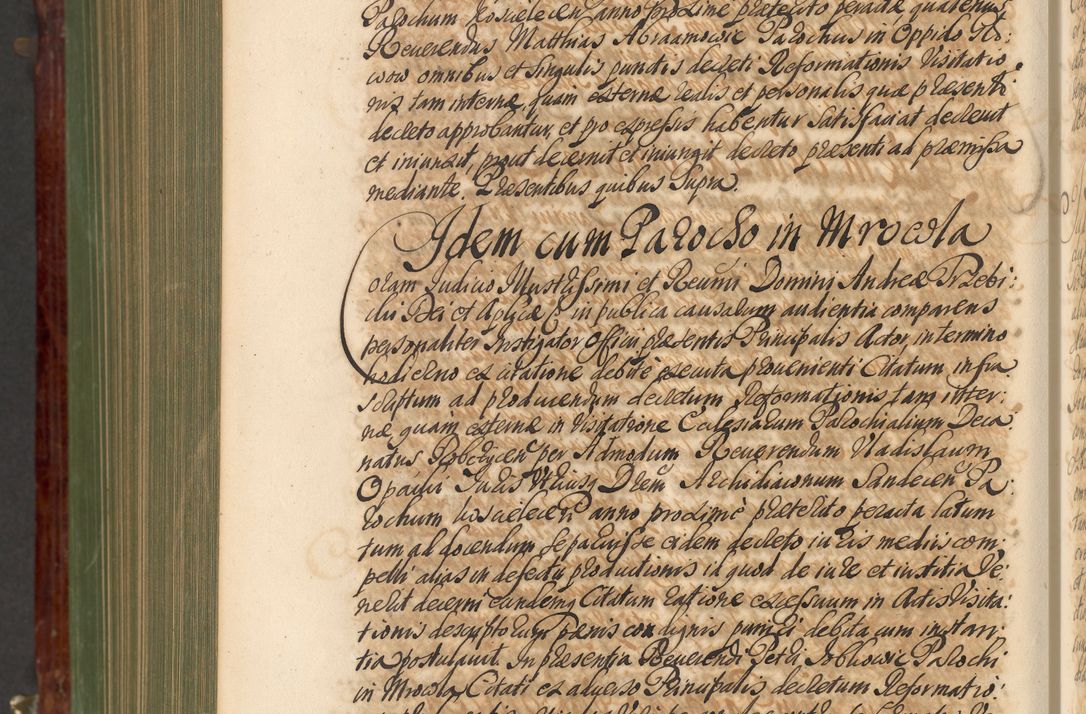 Parochum Koscielecen anno proxime præterito peractæ quatenus
Reuerendus Matthias Abraamowic Parochus in Oppido Ro:
wow omnibus et singulis punctis decreti Reformationis Visitatio
nis tam internæ, quam externæ realis et personalis quæ præsenti
decreto approbantur, et pro expressis habentur satisfaciat decreuit
et iniunxit, prout decernit et iniungit decreto præsenti ad præmissa
mediante. Præsentibus quibus supra.
Idem cum Parocho in Mrocola
oram Iudicio Illustrissimi et Reuñi Domini Andreæ Trzebi:
cki Dei et Aplicæ in publica causarum audientia comparens
personaliter Instigator Officii præsentis Principalis Actor, in termino
hodierno ex citatione debite executa prouenienti Citatum infra
scriptum ad producendum decretum Reformationis tam inter:
næ, quam externæ in Visitatione Ecclesiarum Parochialium Deca
natus per Admodum Reuerendum Vladislaum
Opacki Iuris Vtriusq Drem Archidiaconum Sandecen Pa:
rochum Kosciolecen anno proxime præterito peracta latum
tum ad docendum se paruisse eidem decreto iuris mediis com:
pelli alias in defectu productionis id quod de iure et iustitia Ve:
nerit decerni eundemq Citatum ratione excessuum in Actis Visita:
tionis descriptorum pænis condignis puniri debita cum instan:
tia postulauit. In præsentia Reuerendi Petri Parochi
in Mrocola Citati ex aduerso Principalis decretum Reformatio: